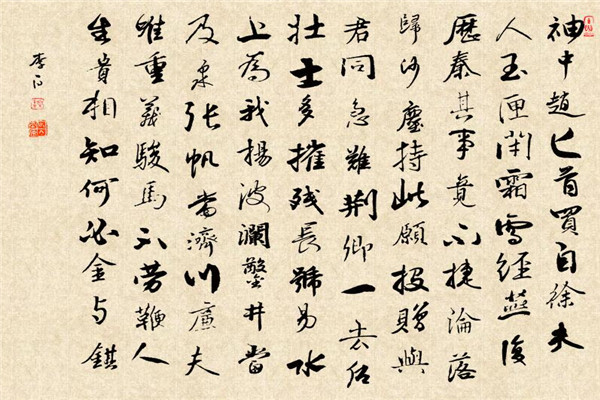 袖中趙匕首買自徐夫
人玉匣閉霜雪經燕復
歷秦其事竟不捷淪落
歸沙塵持此願投贈與
君同急難荊卿一去後
壯士多摧残長號易水
上為我揚波瀾鑿井當
及泉張帆當濟川廉夫
唯重義駿馬不勞鞭人
生貴相知何必金与錢
李白